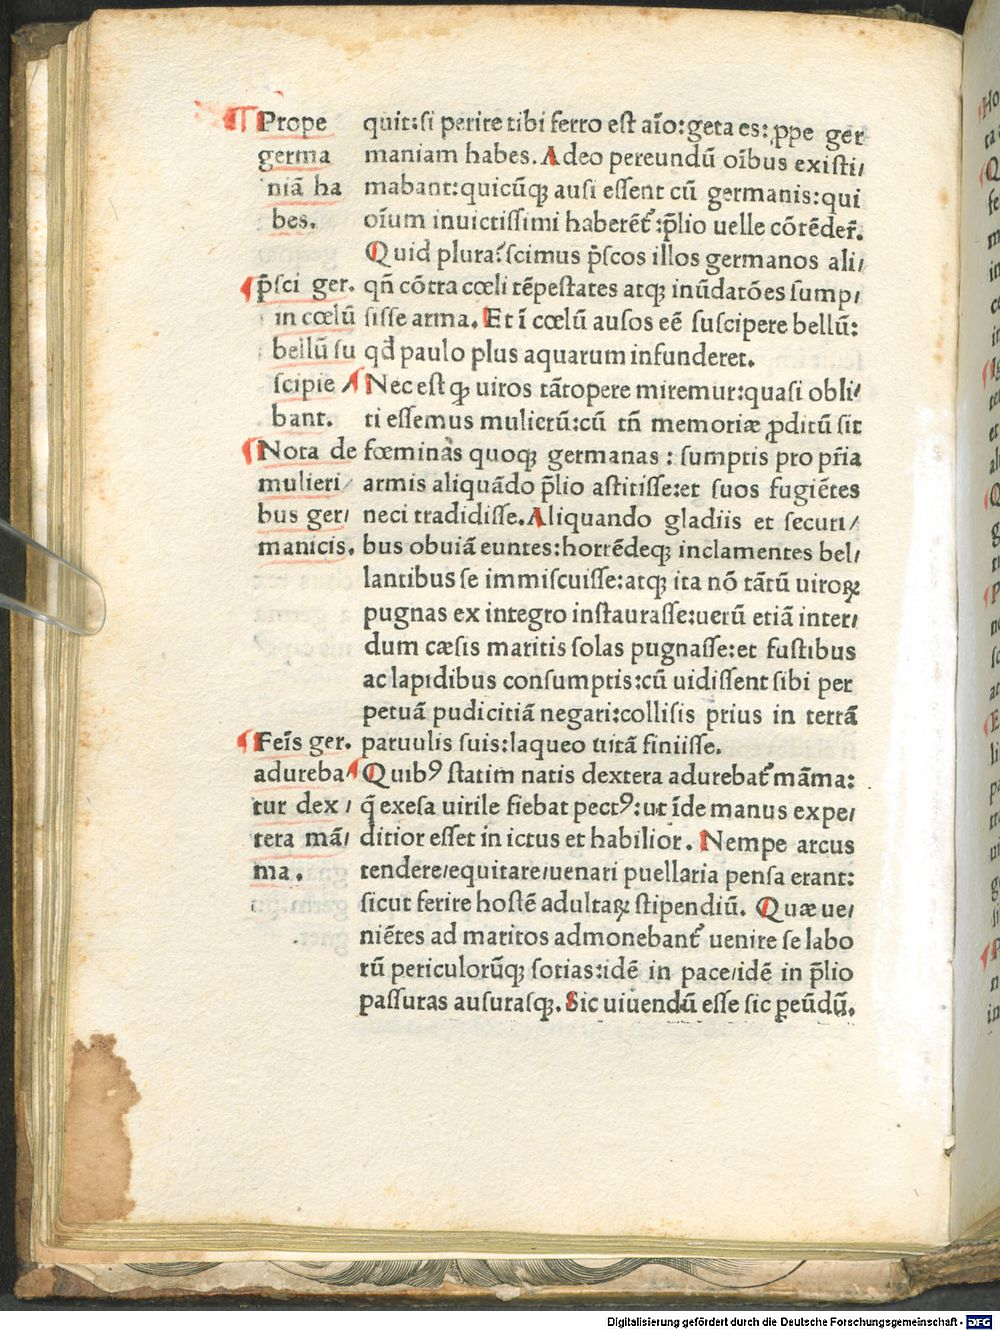 ¶ Prope
germa
niã ha
bes.
p̃sci ger.
in cœlũ
bellũ su
scipie /
bant.
Nota de
mulieri/
bus ger/
manicis.
Feĩs ger.
adureba/
tur dex /
tera mã/
ma .
quit:si perire tibi ferro est aĩo:geta es:ꝓpe ger
maniam habes. Adeo pereundũ oĩbus existi/
mabant:quicũqꝫ ausi essent cũ germanis:qui
oĩum inuictissimi haberẽt᷑:p̃lio uelle cõtẽder̃.
Quid plura?scimus p̃scos illos germanos ali/
qñ cõtra cœli tẽpestates atqꝫ inũdatões sump/
sisse arma. Et ĩ cœlũ ausos eẽ suscipere bellũ:
qd̃ paulo plus aquarum infunderet.
Nec est qꝫ uiros tãtopere miremur:quasi obli/
ti essemus mulierũ:cũ tñ memoriæ ꝓditũ sit
fœminas quoqꝫ germanas : sumptis pro pr̃ia
armis aliquãdo p̃lio astitisse:et suos fugiẽtes
neci tradidisse. Aliquando gladiis et securi/
bus obuiã euntes:horrẽdeqꝫ inclamentes bel/
lantibus se immiscuisse:atqꝫ ita nõ tãtũ uiroꝝ
pugnas ex integro instaurasse:uerũ etiã inter/
dum cæsis maritis solas pugnasse:et fustibus
ac lapidibus consumptis:cũ uidissent sibi per
petuã pudicitiã negari:collisis prius in terrã
paruulis suis:laqueo uitã finiisse.
Quibꝰ statim natis dextera adurebat᷑ mãma:
q̃ exesa uirile fiebat pectꝰ:ut ĩde manus expe/
ditior esset in ictus et habilior. Nempe arcus
tendere/equitare/uenari puellaria pensa erant:
sicut ferire hostẽ adultaꝝ stipendiũ. Quæ ue/
niẽtes ad maritos admonebant᷑ uenire se labo
rũ periculorũqꝫ sotias:idẽ in pace/idẽ in p̃lio
passuras ausurasqꝫ. Sic uiuendũ esse sic ꝑeũdũ.
Digitalisierung gefördert durch die Deutsche Forschungsgemeinschaft - DFG